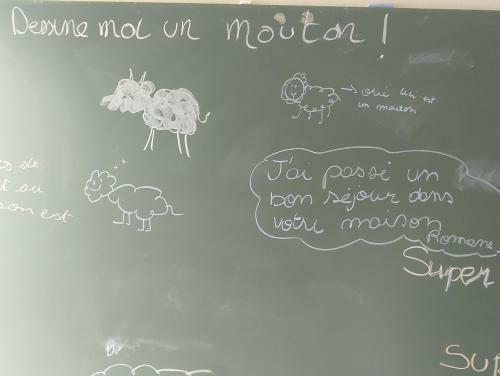 Dessine moi un mouton !
→ oui lui est
un mouton
J'ai passé un
bon séjour dans
votre maison
Romane
de
au
est
Super
Sup